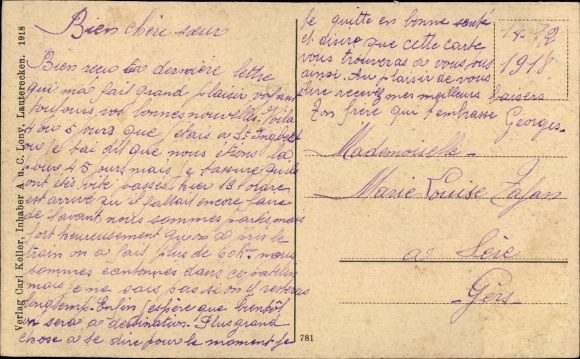 Bien chère sœur
Bien reçu ta dernière lettre
qui ma fait grand plaisir
toujours, vos bonnes nouvelles. Voilà
4 ou 5 jours que étais a St
ou je tai dit que nous étions là
pour 4 5 jours mais je tassure quils
ont étés vite passés. hier 18 l'ordre
est arrivé qu'il fallait encore faire
de l'avant nous sommes partis, mais
fort heureusement quon a pris le
train on a fait plus de 60 km. nous
sommes cantonnés dans
mais je ne sais pas si on y restera
longtemp. Enfin j'espère que bientôt
on sera a destination. Plus grand
chose a te dire pour le moment je
te quitte en bonne santé
et désire que cette carte
vous trouveras de vous tous
ainsi. Au plaisir de vous
lire recevez mes meilleurs baisers
Ton frère qui t'embrasse Georges
1918
Mademoiselle
Marie Louise
a
Gers
781
Verlag Carl Keller, Inhaber A u. C. Lony, Lauterecken. 1918